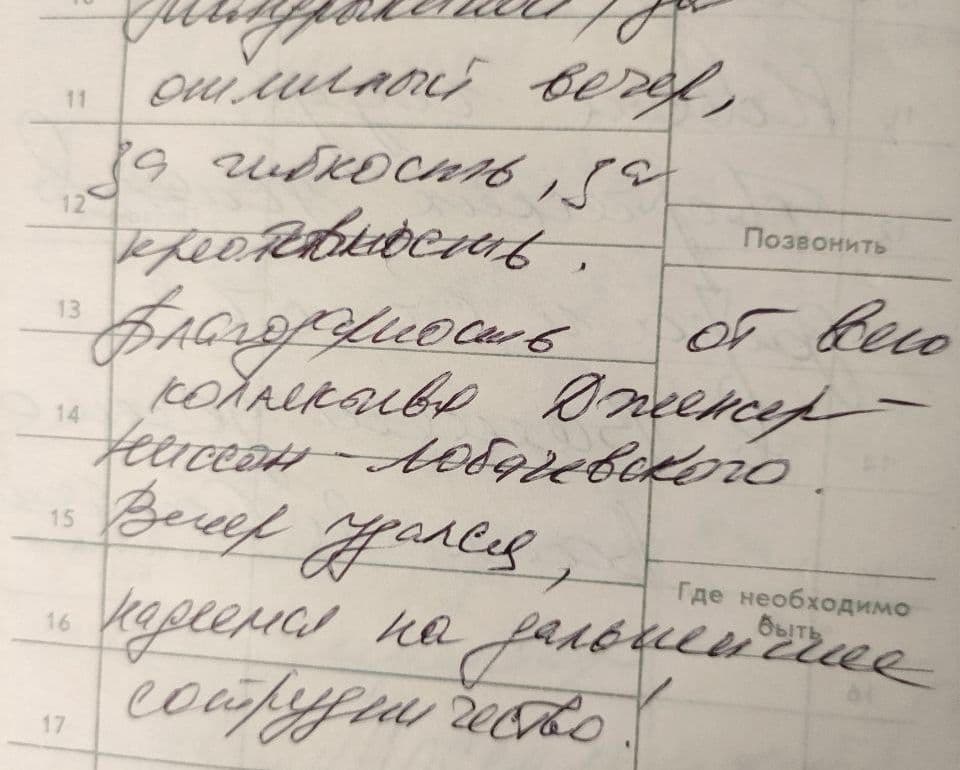 за
11 отличный вечер,
за гибкость, за
12
креативность.
Позвонить
13 Благодарность от всего
14 коллектива Дженсер-
Ниссан-Лобачевского.
15 Вечер удался,
Где необходимо быть
16 надеемся на дальнейшее
17 сотрудничество!